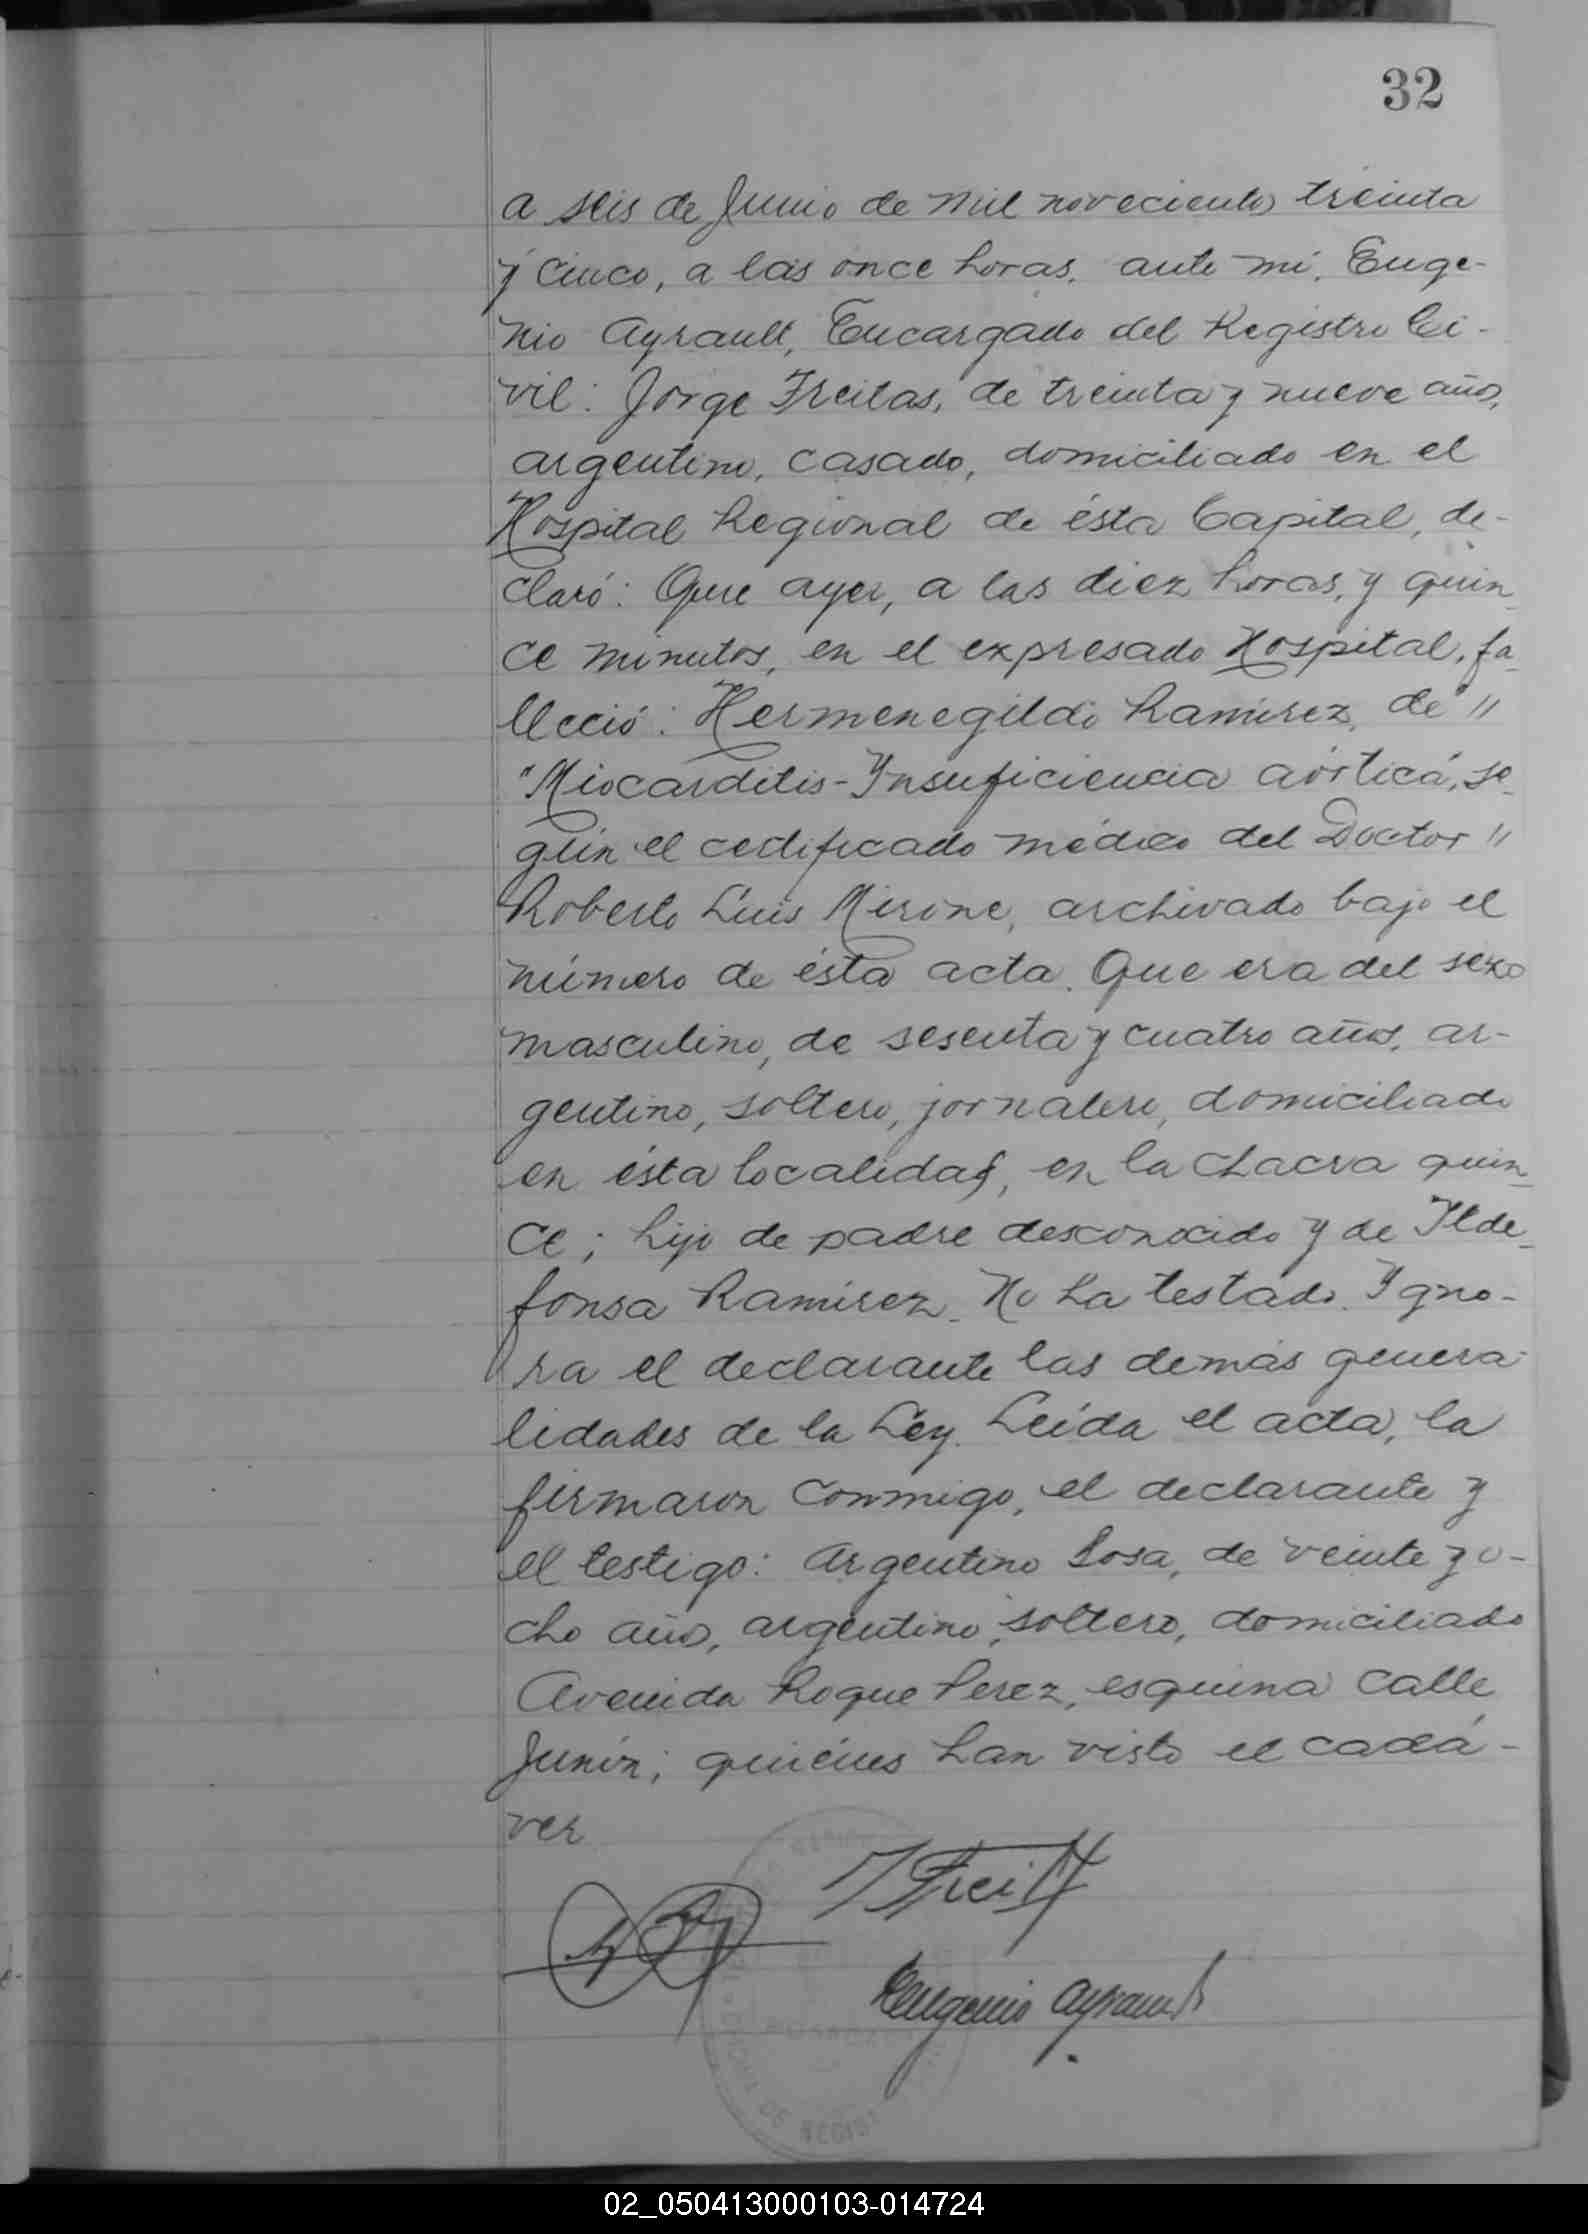 32
a seis de Junio de mil novecientos treinta
y cinco, a las once horas, ante mí, Euge-
nio Ayrault, Encargado del Registro Ci-
vil: Jorge Freitas, de treinta y nueve años,
argentino, casado, domiciliado en el
Hospital Regional de ésta Capital, de-
claró: Que ayer, a las diez horas, y quin-
ce minutos, en el expresado Hospital, fa-
lleció: Hermenegildo Ramírez, de "
"Miocarditis-Insuficiencia aórtica", se-
gún el certificado médico del Doctor "
Roberto Luis Mirone, archivado bajo el
número de ésta acta. Que era del sexo
masculino, de sesenta y cuatro años, ar-
gentino, soltero, jornalero, domiciliado
en ésta localidad, en la chacra quin-
ce; hijo de padre desconocido y de Ilde-
fonsa Ramírez. No ha testado. Igno-
ra el declarante las demás genera-
lidades de la Ley. Leída el acta, la
firmaron conmigo, el declarante y
el testigo: Argentino Sosa, de veinte y o-
cho años, argentino, soltero, domiciliado
Avenida Roque Perez, esquina calle
Junín; quiénes han visto el cadá-
ver
J Freitas
Eugenio Ayrault
02_050413000103-014724